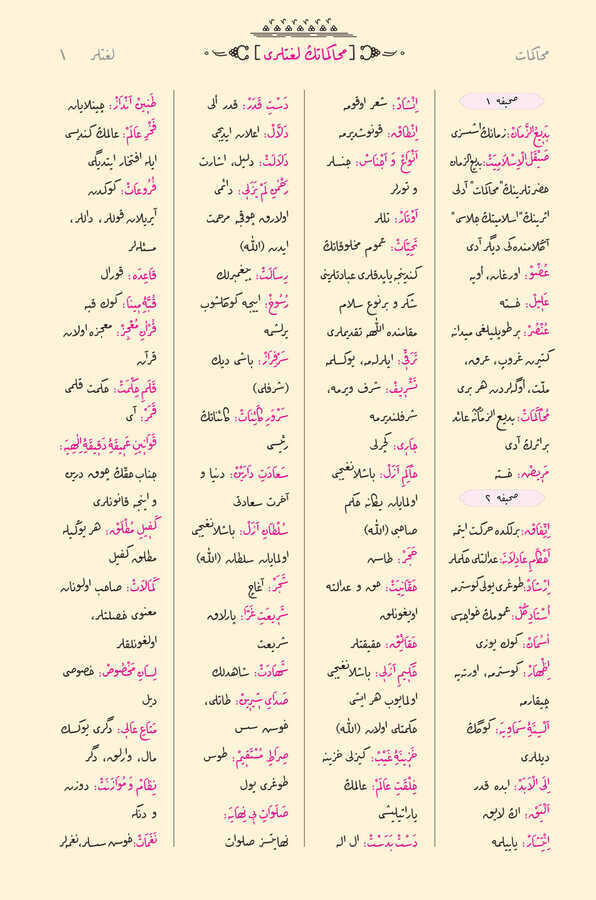 محاكمات
[محاكماتڭ لغتلری]
لغتلر
١
صحيفه ١
بَدِيعُ الزَّمَانْ: زمانڭ اشسزی
صَيْقَلُ الْاِسْلَامِيَتْ: بديع الزمان
حضرتلرينڭ "محاكمات" آدلی
اثرينڭ "اسلاميتڭ جلاسی"
آڭلامنده‌كی ديگر آدی
عُضْوْ: اورغان، اويه
عَلِيلْ: خسته
عُنْصُرْ: بر طوپليلغی ميدانه
كتيرن غروپ، عرق،
ملّت، اوگلردن هر بری
مُحَاكَمَاتْ: بديع الزمانه عائد
بر اثرڭ آدی
مَرِيضْ: خسته
صحيفه ٢
اِتِّفَاقْ: برلكده حركت ايتمه
اَحْكَامِ عَادِلَانَه: عدالتلی حكملر
اِرْشَادْ: طوغری يولی كوسترمه
اُسْتَادِ كُلْ: عمومڭ خواجه‌سی
آسْمَانْ: كوك يوزی
اِظْهَارْ: كوسترمه، اورته‌يه
چيقارمه
اَلْسِنَۀِ سَمَاوِيَه: كوگڭ
ديللری
اِلَى الْاَبَدْ: ابده قدر
اَلْيَقْ: اڭ لايق
اِنْتِشَارْ: ياييلمه
اِنْشَادْ: شعر اوقومه
اِنْطَاقْ: قونوشديرمه
اَنْوَاعْ وَ اَجْنَاسْ: جنسلر
و تورلر
اَوْتَارْ: تللر
تَحِيَّاتْ: عموم مخلوقاتڭ
كنديجه ياپدقلری عبادتلرينی
شكر و بر نوع سلام
مقامنده اللّٰهه تقديملری
تَرَقِّی: ايلرلمه، يوكسلمه
تَشْرِيفْ: شرف ويرمه،
شرفلنديرمه
جَارِی: كچرلی
حَاكِمِ اَزَلْ: باشلانغيجی
اولمايان يڭانه حكم
صاحبی (اللّٰه)
حَجَرْ: طاش
حَقَّانِيَتْ: حق و عدالته
اويغونلق
حَقَائِقْ: حقيقتلر
حَكِيمِ اَزَلِی: باشلانغيجی
اولمايوب هر ايشی
حكمتلی اولان (اللّٰه)
خَزِينَۀِ غَيْبْ: كيزلی خزينه
خِلْقَتِ عَالَمْ: عالمڭ
ياراتيليشی
دَسْتْ بَدَسْتْ: ال اله
دَسْتِ قَدَرْ: قدر الی
دَلَّالْ: اعلان ايديجی
دَلَالَتْ: دليل، اشارت
رَحْمٰنِ لَمْ يَزَلِی: دائمی
اولارق چوق مرحمت
ايدن (اللّٰه)
رِسَالَتْ: پيغمبرلك
رُسُوخْ: اييجه كوكلشوب
يرلشمه
سَرْفِرَازْ: باشی ديك
(شرفلی)
سَرْوَرِ كَائِنَاتْ: كائناتڭ
رئيسی
سَعَادَتِ دَارَيْنْ: دنيا و
آخرت سعادتی
سُلْطَانِ اَزَلْ: باشلانغيجی
اولمايان سلطان (اللّٰه)
شَجَرْ: آغاج
شَرِيعَتِ غَرَّا: پارلاق
شريعت
شَهَادَتْ: شاهدلك
صَدَایِ شِيرِينْ: طاتلی،
خوش سس
صِرَاطِ مُسْتَقِيمْ: طوس
طوغری يول
صَلَوَاتِ بِی نِهَايَه:
نهايتسز صلوات
طَنِينْ اَنْدَازْ: چينلايان
فَخْرِ عَالَمْ: عالمڭ كنديسی
ايله افتخار ايتديگی
فُرُوعَاتْ: كوكدن
آيريلان قوللر، داللر،
مسئله‌لر
قَاعِدَه: قورال
قُبَّۀِ مِينَا: كوك قبه
قُرْاٰنِ مُعْجِزْ: معجزه اولان
قرآن
قَلَمِ حِكْمَتْ: حكمت قلمی
قَمَرْ: آی
قَوَانِينِ عَمِيقَۀِ دَقِيقَۀِ اِلٰهِيَه:
جناب حقڭ چوق درين
و اينجه قانونلری
كَفِيلِ مُطْلَقْ: هر يوڭيله
مطلق كفيل
كَمَالَاتْ: صاحب اولونان
معنوی خصلتلر،
اولغونلقلر
لِسَانِ مَخْصُوصْ: خصوصی
ديل
مَتَاعِ عَالِی: دگری يوكسك
مال، وارلق، دگر
نِظَامْ وَ مُوَازَنَتْ: دوزن
و دنگه
نَغَمَاتْ: خوش سسلر، نغمه‌لر